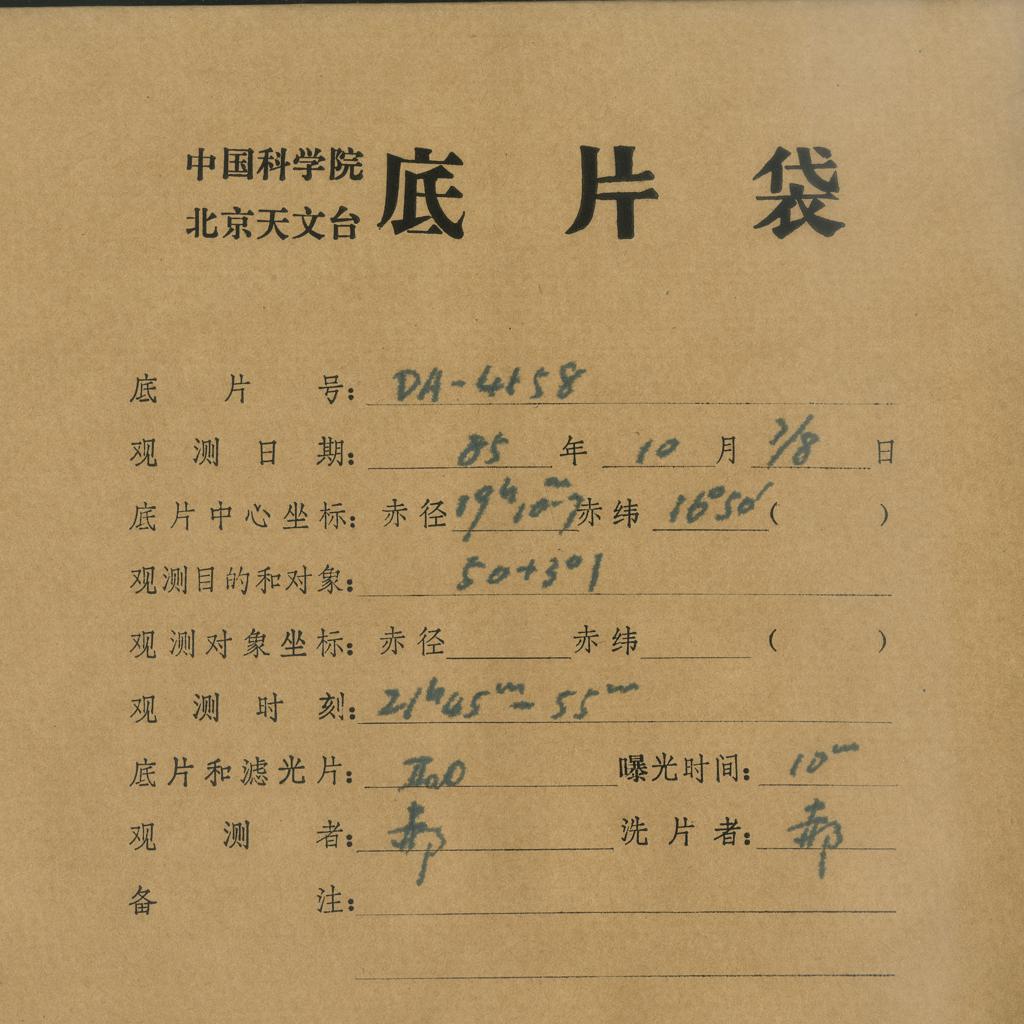 中国科学院
北京天文台
底片袋
底片号: DA-4158
观测日期: 85年10月7/8日
底片中心坐标: 赤径19h10m7 赤纬16°50′( )
观测目的和对象: 50+301
观测对象坐标: 赤径 赤纬 ( )
观测时刻: 21h45m-55m
底片和滤光片: IIaO 曝光时间: 10m
观测者: 郝 洗片者: 郝
备注: